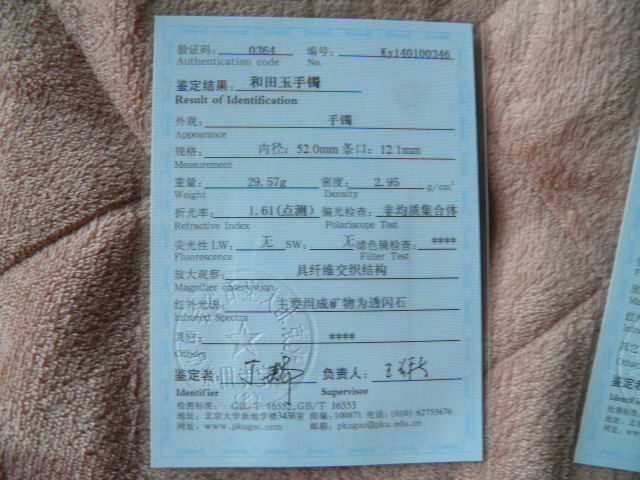 验证码: 0364 编号: Ky140100346
Authentication code No.
鉴定结果: 和田玉手镯
Result of Identification
外观: 手镯
Appearance
规格: 内径: 52.0mm 条口: 12.1mm
Measurement
重量: 29.57g 密度: 2.95 g/cm³
Weight Density
折光率: 1.61(点测) 偏光检查: 非均质集合体
Refractive Index Polariscope Test
荧光性 LW: 无 SW: 无 滤色镜检查: ****
Fluorescence Filter Test
放大观察: 具纤维交织结构
Magnifier observation
红外光谱: 主要组成矿物为透闪石
Infrared Spectra
其它: ****
Others
鉴定者: 负责人:
Identifier Supervisor
检测标准: GB/T 16552,GB/T 16553
地址: 北京大学新地学楼3438室 邮编: 100871 电话: (010) 62755676
网址: www.pkugac.com 邮箱: pkugac@pku.edu.cn